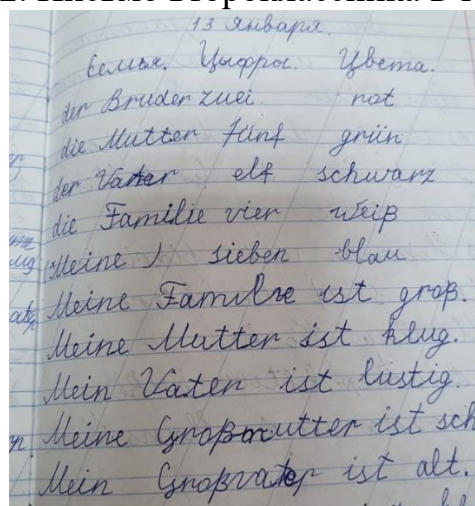 13 января.
Семья. Цыфры. Цвета.
der Bruder zwei rot
die Mutter fünf grün
der Vater elf schwarz
die Familie vier weiß
(Meine) sieben blau
Meine Familie ist groß.
Meine Mutter ist klug.
Mein Vater ist lustig.
Meine Großmutter ist sch
Mein Großvater ist alt.